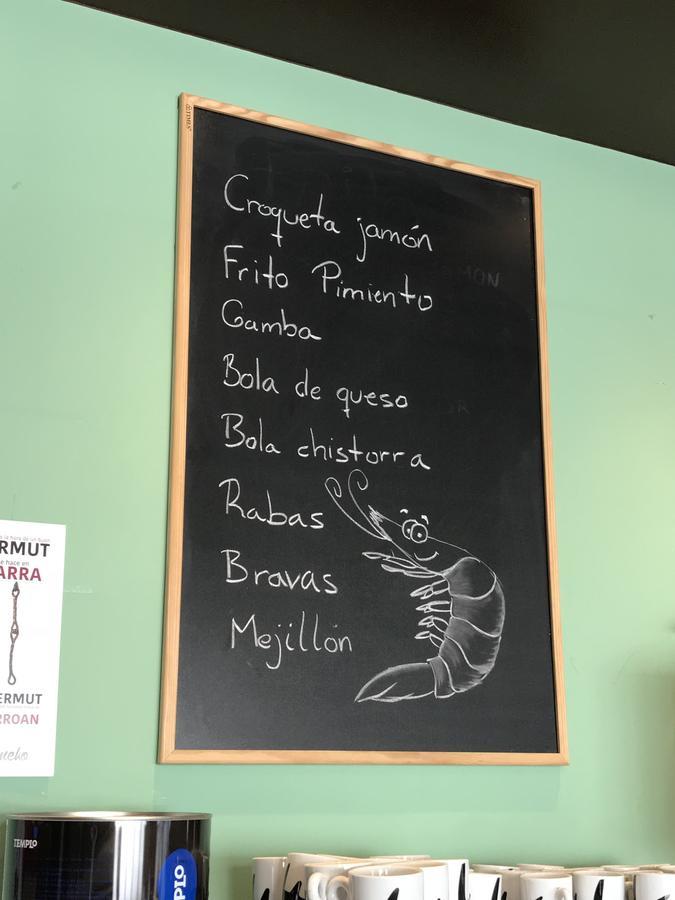 Croqueta jamón
Frito Pimiento
Gamba
Bola de queso
Bola chistorra
Rabas
Bravas
Mejillón
ERMUT
se hace en
ARRA
ERMUT
RROAN
ncho
TEMPLO
PLO